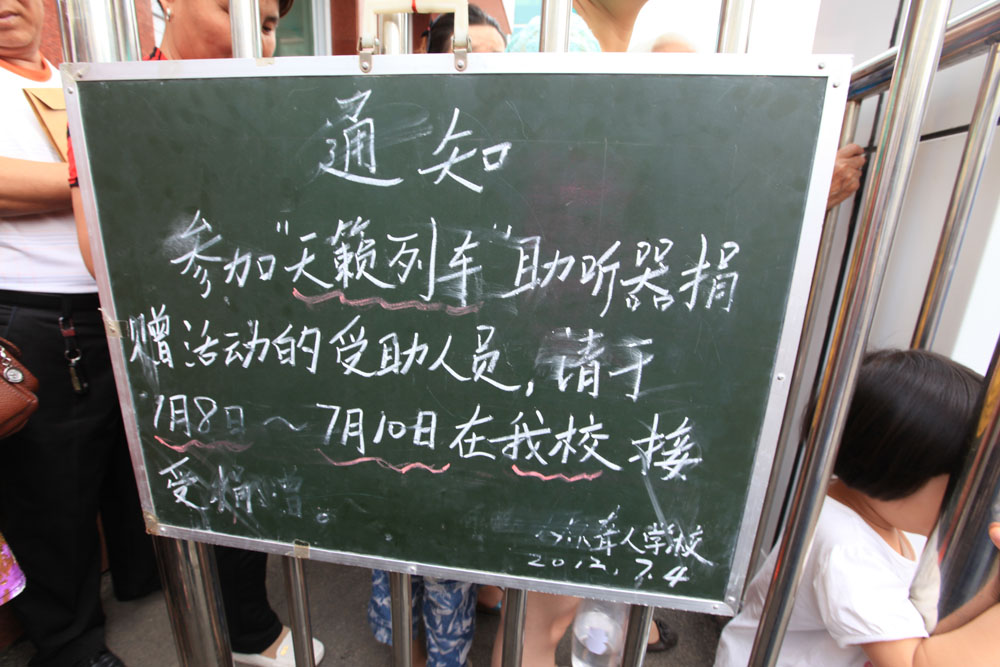 通知
参加"天籁列车"助听器捐
赠活动的受助人员，请于
7月8日～7月10日在我校接
受捐赠
聋人学校
2012.7.4